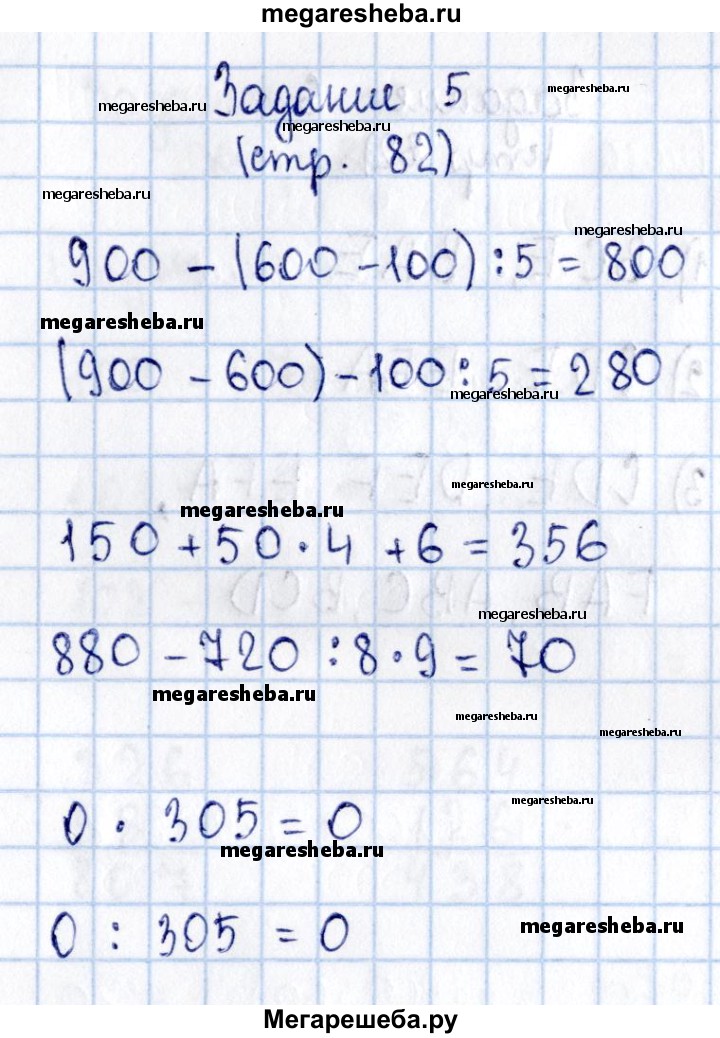 megaresheba.ru
Задание 5
megaresheba.ru
megaresheba.ru
megaresheba.ru
(стр. 82)
megaresheba.ru
megaresheba.ru
900 - (600 - 100) : 5 = 800
megaresheba.ru
(900 - 600) - 100 : 5 = 280
megaresheba.ru
megaresheba.ru
megaresheba.ru
150 + 50 · 4 + 6 = 356
megaresheba.ru
880 - 720 : 8 · 9 = 70
megaresheba.ru
megaresheba.ru
megaresheba.ru
megaresheba.ru
0 · 305 = 0
megaresheba.ru
megaresheba.ru
0 : 305 = 0
Мегарешеба.ру